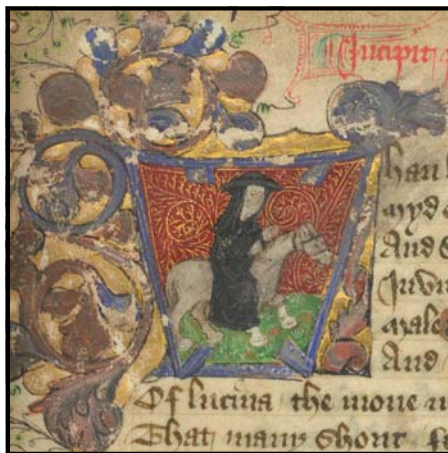 Incipit
han
myd
And
And
Of lucina the mone
That many shour